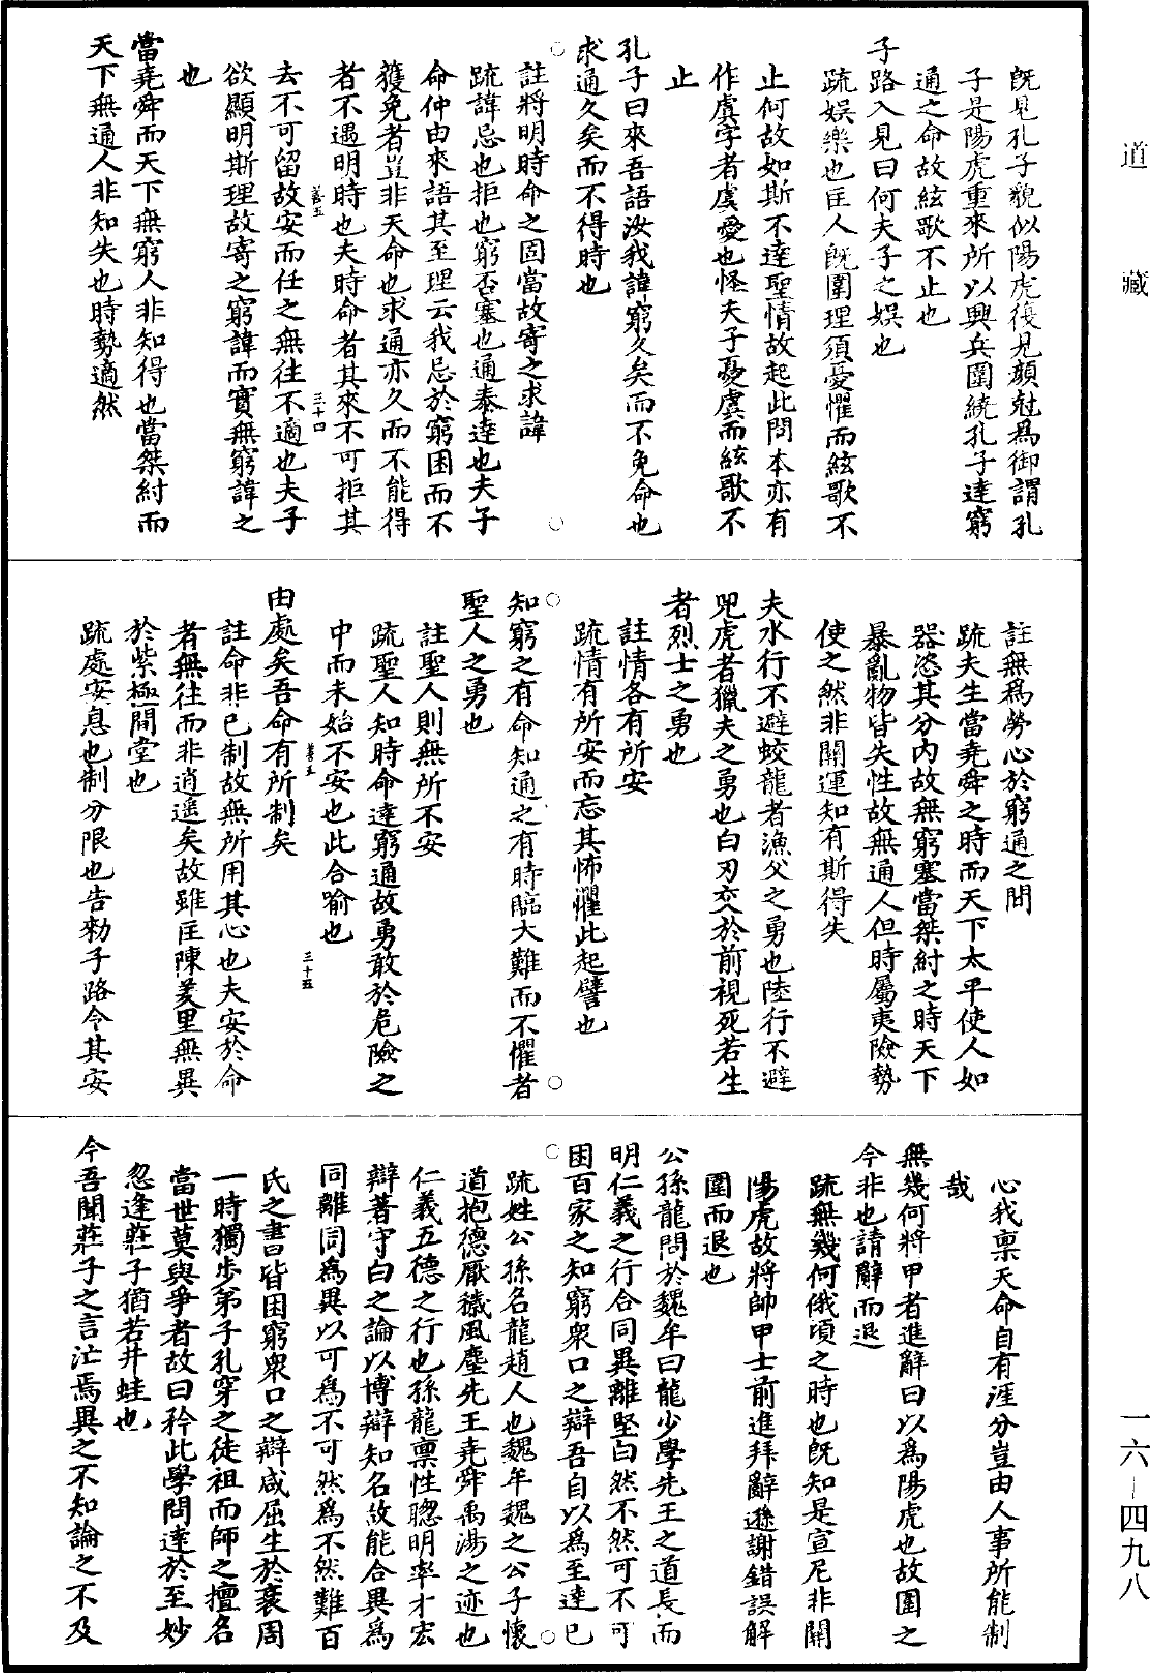 道藏
既見孔子貌似陽虎復見顏尅為御謂孔
子是陽虎重來所以興兵圍繞孔子達窮
通之命故絃歌不止也
子路入見曰何夫子之娛也
疏娛樂也匡人既圍理須憂懼而絃歌不
止何故如斯不達聖情故起此問本亦有
作虞字者虞憂也怪夫子憂虞而絃歌不
止
孔子曰來吾語汝我諱窮久矣而不免命也
求通久矣而不得時也
註將明時命之固當故寄之求諱
疏諱忌也拒也窮否塞也通泰達也夫子
命仲由來語其至理云我忌於窮困而不
獲免者豈非天命也求通亦久而不能得
者不遇明時也夫時命者其來不可拒其
善五 三十四
去不可留故安而任之無往不適也夫子
欲顯明斯理故寄之窮諱而實無窮諱之
也
當堯舜而天下無窮人非知得也當桀紂而
天下無通人非知失也時勢適然
註無為勞心於窮通之間
疏夫生當堯舜之時而天下太平使人如
器恣其分內故無窮塞當桀紂之時天下
暴亂物皆失性故無通人但時屬夷險勢
使之然非關運知有斯得失
夫水行不避蛟龍者漁父之勇也陸行不避
兕虎者獵夫之勇也白刃交於前視死若生
者烈士之勇也
註情各有所安
疏情有所安而忘其怖懼此起譬也
知窮之有命知通之有時臨大難而不懼者
聖人之勇也
註聖人則無所不安
疏聖人知時命達窮通故勇敢於危險之
中而未始不安也此合喻也
善五 三十五
由處矣吾命有所制矣
註命非己制故無所用其心也夫安於命
者無往而非逍遙矣故雖匡陳羑里無異
於紫極間堂也
疏處安息也制分限也告勑子路令其安
心我稟天命自有涯分豈由人事所能制
哉
無幾何將甲者進辭曰以為陽虎也故圍之
今非也請辭而退
疏無幾何俄頃之時也既知是宣尼非關
陽虎故將帥甲士前進拜辭遜謝錯誤解
圍而退也
公孫龍問於魏牟曰龍少學先王之道長而
明仁義之行合同異離堅白然不然可不可
困百家之知窮眾口之辯吾自以為至達已
疏姓公孫名龍趙人也魏牟魏之公子懷
道抱德厭穢風塵先王堯舜禹湯之迹也
仁義五德之行也孫龍稟性聰明率才宏
辯著守白之論以博辯知名故能合異為
同離同為異以可為不可然為不然難百
氏之書皆困窮眾口之辯咸屈生於衰周
一時獨步弟子孔穿之徒祖而師之擅名
當世莫與爭者故曰矜此學問達於至妙
忽逢莊子猶若井蛙也
今吾聞莊子之言汒焉異之不知論之不及
一六—四九八